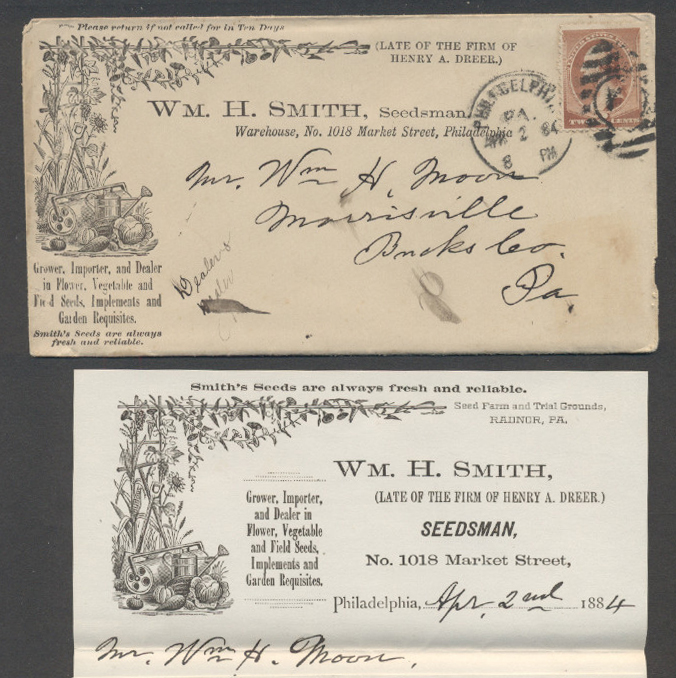 Please return if not called for in Ten Days
(LATE OF THE FIRM OF
HENRY A. DREER.)
WM. H. SMITH, Seedsman,
Warehouse, No. 1018 Market Street, Philadelphia
PHILADELPHIA
PA.
APR 2 84
8 PM
TWO CENTS
Mr. Wm H. Moon
Morrisville
Bucks Co.
Pa
Dealers
Grower, Importer, and Dealer
in Flower, Vegetable and
Field Seeds, Implements and
Garden Requisites.
Smith's Seeds are always
fresh and reliable.
Smith's Seeds are always fresh and reliable.
Seed Farm and Trial Grounds,
RADNOR, PA.
WM. H. SMITH,
(LATE OF THE FIRM OF HENRY A. DREER.)
SEEDSMAN,
No. 1018 Market Street,
Grower, Importer,
and Dealer in
Flower, Vegetable
and Field Seeds,
Implements and
Garden Requisites.
Philadelphia, Apr. 2nd 1884
Mr. Wm H. Moon,